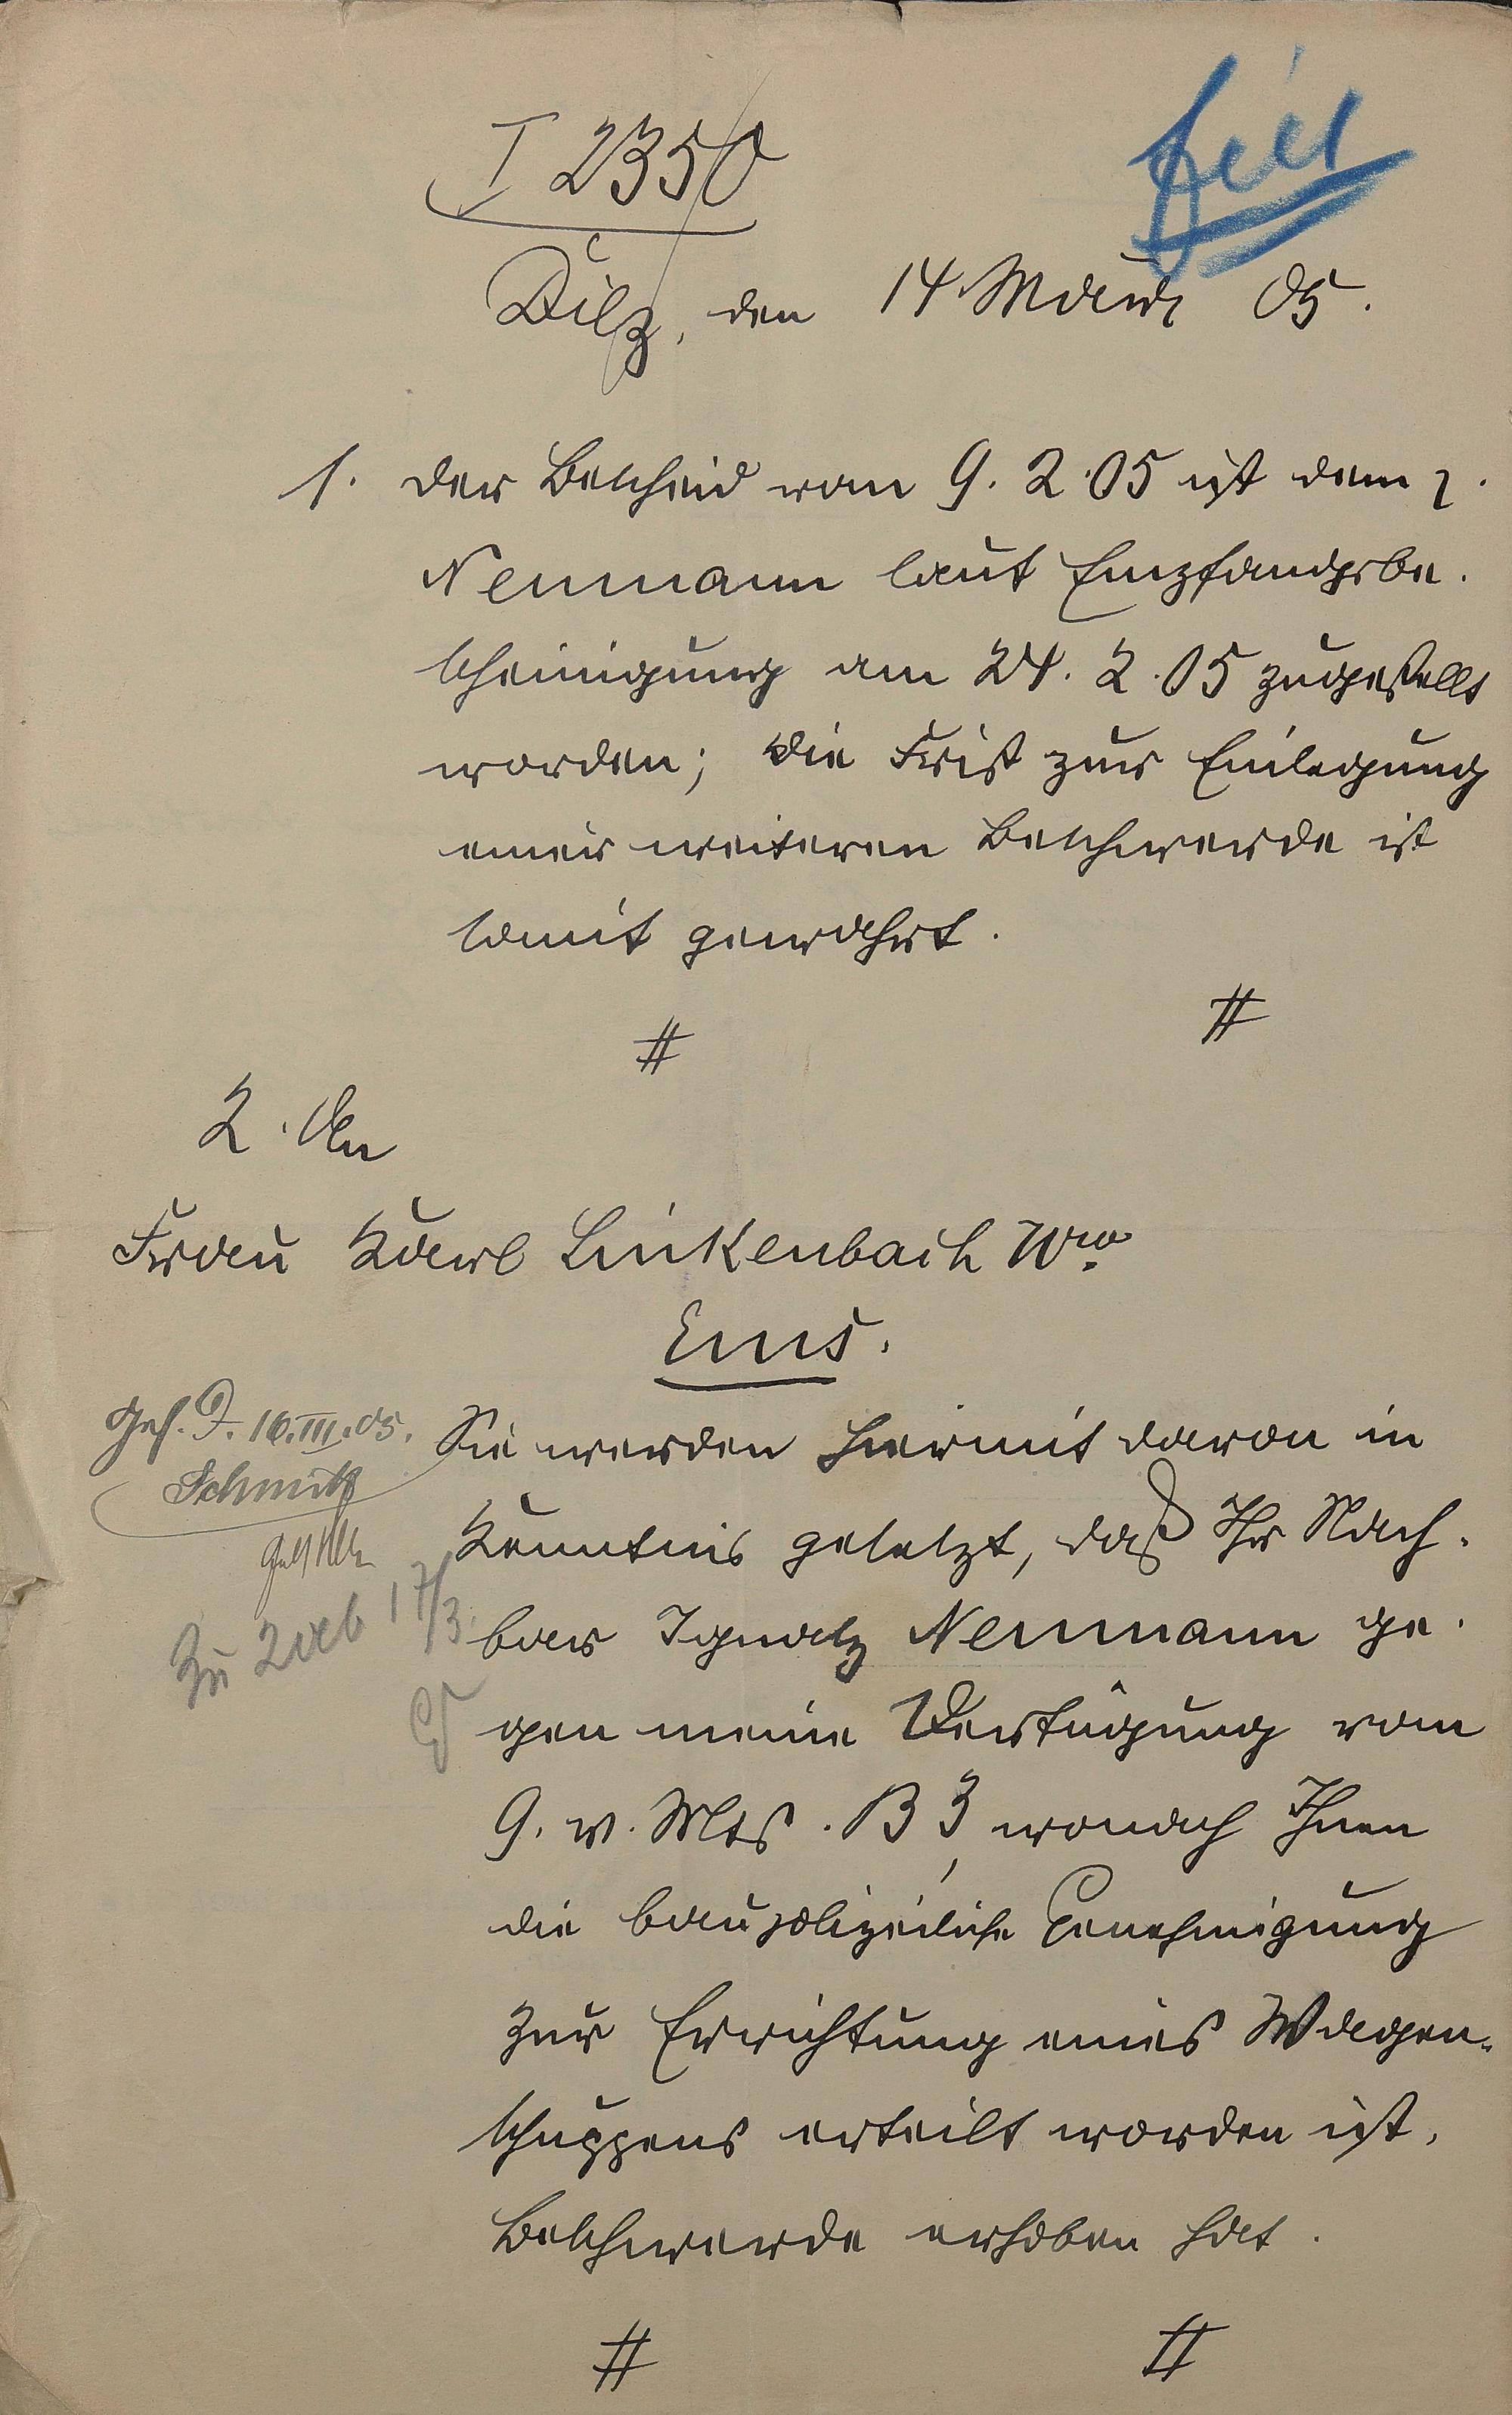 I 2350
Diez, den 14 März 05.
1. Der Bescheid vom 9. 2. 05 ist dem p.
Neumann laut Empfangsbe-
scheinigung am 24. 2. 05 zugestellt
worden; die Frist zur Einlegung
einer weiteren Beschwerde ist
somit gewahrt.
#
#
2. An
Frau Karl Linkenbach Ww.
Ems.
Sie werden hiermit davon in
Kenntnis gesetzt, daß Ihr Nach-
bar Ignatz Neumann ge-
gen meine Verfügung vom
9. v. Mts. B 3, wonach Ihnen
die baupolizeiliche Genehmigung
zur Errichtung eines Wagen-
schuppens erteilt worden ist,
Beschwerde erhoben hat.
#
#
16.III.05.
Schmitt
Zu 2 ab 17/3.